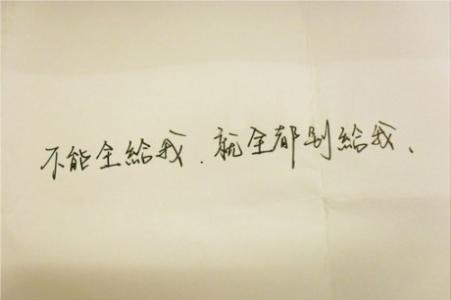 不能全給我.就全都别給我、